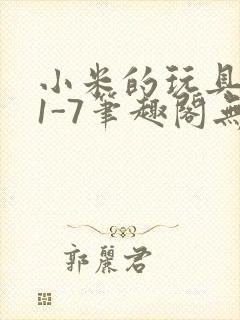 小米的玩具
1-7筆趣閣無
郭麗君